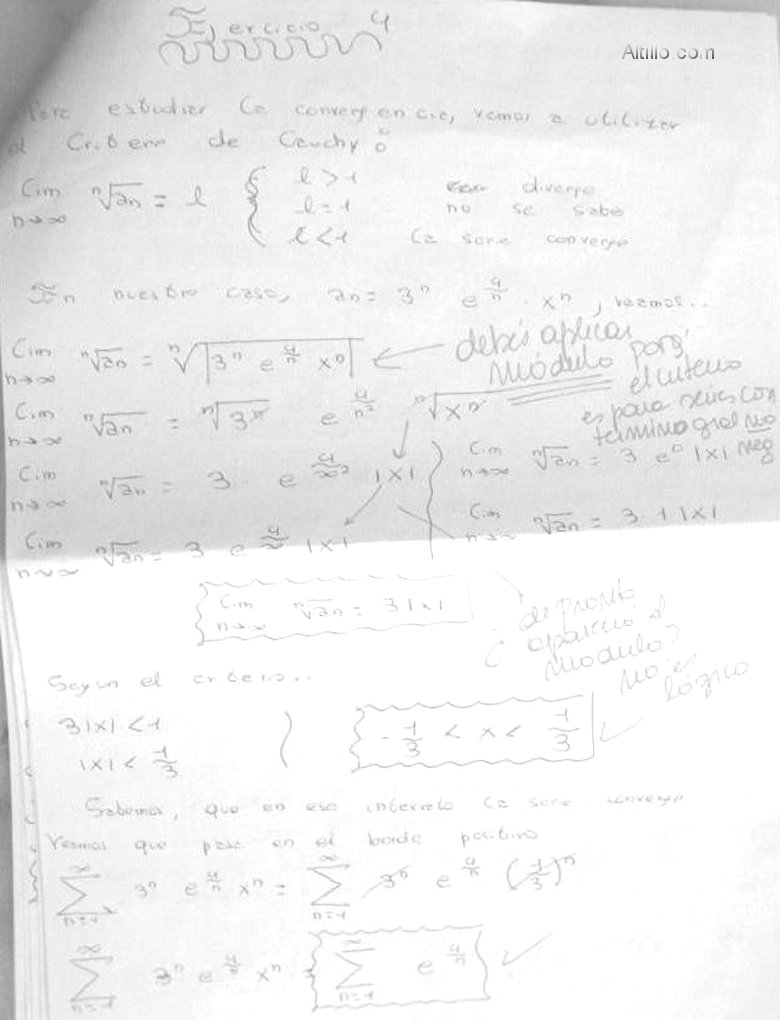 Ejercicio 4
Altillo.com
Para estudiar la convergencia, vamos a utilizar
el Criterio de Cauchy:
lim n→∞ ⁿ√an = l { l > 1 diverge
l = 1 no se sabe
l < 1 la serie converge
En nuestro caso, an = 3ⁿ e^(4/n) · xⁿ, veamos..
lim n→∞ ⁿ√an = ⁿ√|3ⁿ e^(4/n) xⁿ| ← debés aplicar
Módulo porq'
el criterio
es para series con
término gral no
neg
lim n→∞ ⁿ√an = ⁿ√3ⁿ e^(4/n²) ⁿ√xⁿ
lim n→∞ ⁿ√an = 3 · e^(4/∞²) |x|
lim n→∞ ⁿ√an = 3 e⁰ |x|
lim n→∞ ⁿ√an = 3 e^(4/∞) |x|
lim n→∞ ⁿ√an = 3 · 1 |x|
lim n→∞ ⁿ√an = 3|x|
¿de pronto
apareció el
módulo?
No es
lógico
Según el criterio..
3|x| < 1
|x| < 1/3
-1/3 < x < 1/3
Sabemos, que en ese intervalo la serie converge
Veamos que pasa en el borde positivo
∑ n=1 ∞ 3ⁿ e^(4/n) xⁿ = ∑ n=1 ∞ 3ⁿ e^(4/n) (1/3)ⁿ
∑ n=1 ∞ 3ⁿ e^(4/n) xⁿ = ∑ n=1 ∞ e^(4/n)